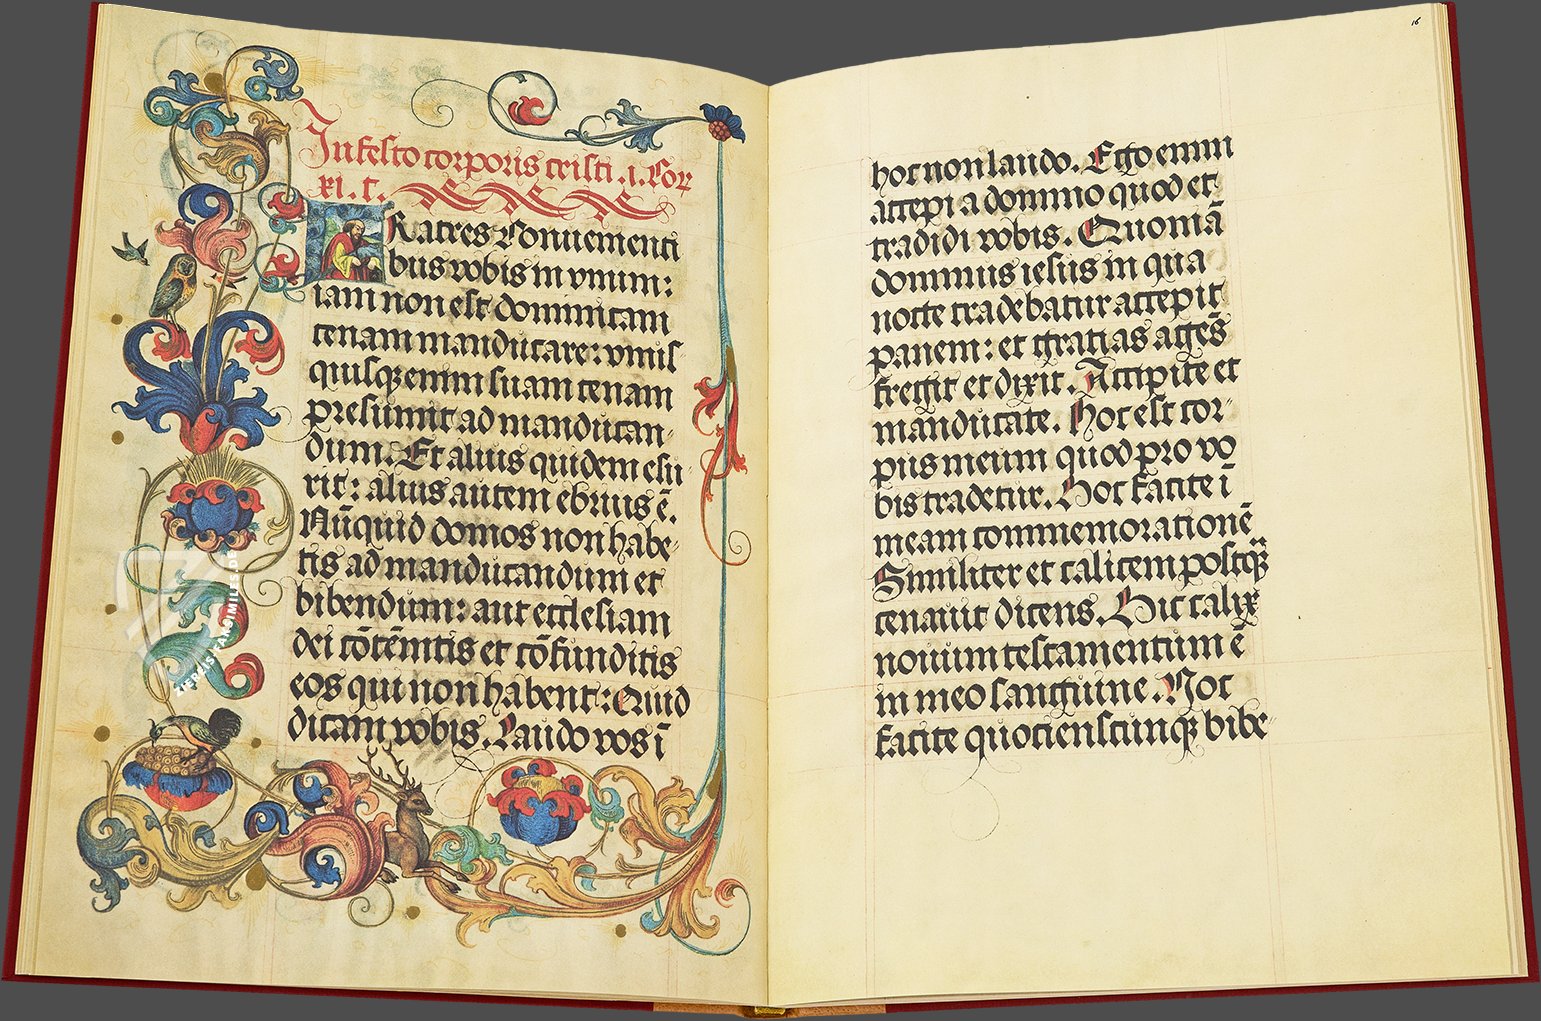 In festo corporis cristi .i. Cor
xi. c.
Fratres Conuenienti
bus vobis in vnum:
iam non est dominicam
cenam manducare: vnus
quisq; enim suam cenam
presumit ad manducan-
dum. Et alius quidem esu-
rit: alius autem ebrius ē.
Nūquid domos non habe-
tis ad manducandum et
bibendum: aut ecclesiam
dei cōtēnitis et cōfunditis
eos qui non habent: Quid
dicam vobis. Laudo vos ī
16
hoc non laudo. Ego enim
accepi a domino quod et
tradidi vobis. Quoniā
dominus iesus in qua
nocte tradebatur accepit
panem: et gratias agēs
fregit et dixit. Accipite et
manducate. Hoc est cor-
pus meum quod pro vo
bis tradetur. Hoc facite ī
meam commemorationē
Similiter et calicem postq̄
cenauit dicens. Hic calix
nouum testamentum ē
in meo sanguine. Hoc
facite quotienscunq; bibe-
ZIEREIS FAKSIMILES.DE